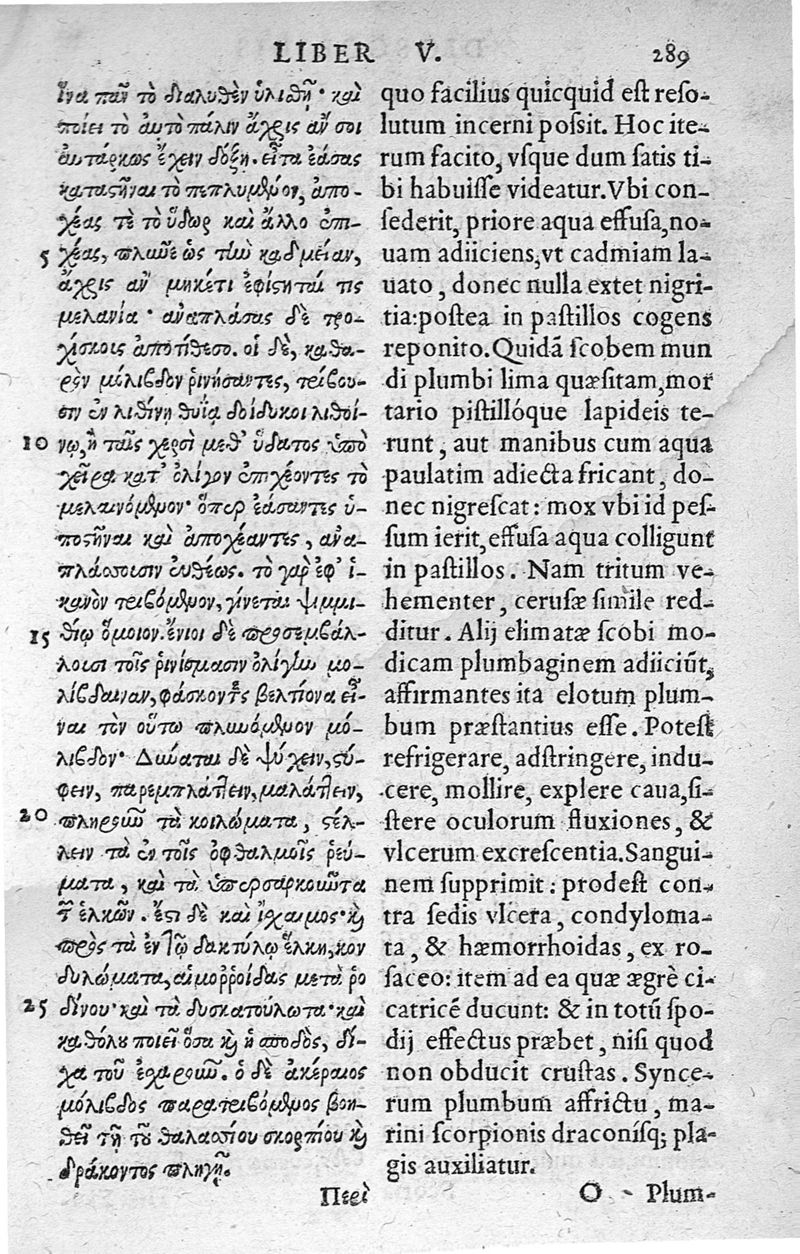 LIBER V. 289
ἵνα πᾶν τὸ διαλυθὲν ὑλισθῇ· καὶ
ποίει τὸ αὐτὸ πάλιν ἄχρις ἄν σοι
αὐτάρκως ἔχειν δόξῃ. εἶτα ἐάσας
καταστῆναι τὸ πεπλυμένον, ἀπο-
χέας τε τὸ ὕδωρ καὶ ἄλλο ἐπι-
5 χέας, πλῦνε ὡς τὴν καδμείαν,
ἄχρις ἂν μηκέτι ἐφίστηταί τις
μελανία· ἀναπλάσας δὲ τρο-
χίσκοις ἀποτίθεσο. οἱ δὲ, καθα-
ρὸν μόλιβδον ῥινήσαντες, τρίβου-
σιν ἐν λιθίνῃ θυΐᾳ δοίδυκι λιθί-
10 νῳ, ἢ ταῖς χερσὶ μεθ' ὕδατος ὑπὸ
χεῖρα κατ' ὀλίγον ἐπιχέοντες τὸ
μελαινόμενον· ὅπερ ἐάσαντες ὑ-
ποστῆναι καὶ ἀποχέαντες, ἀνα-
πλάσσουσιν εὐθέως. τὸ γὰρ ἐφ' ἱ-
κανὸν τριβόμενον, γίνεται ψιμμι-
15 θίῳ ὅμοιον. ἔνιοι δὲ προσεμβάλ-
λουσι τοῖς ῥινίσμασιν ὀλίγην μο-
λίβδαιναν, φάσκοντες βελτίονα εἶ-
ναι τὸν οὕτω πλυνόμενον μό-
λιβδον· Δύναται δὲ ψύχειν, στύ-
φειν, παρεμπλάττειν, μαλάττειν,
20 πληροῦν τὰ κοιλώματα, στέλ-
λειν τὰ ἐν τοῖς ὀφθαλμοῖς ῥεύ-
ματα, καὶ τὰ ὑπερσαρκοῦντα
τῶν ἑλκῶν. ἔστι δὲ καὶ ἴχαιμος· καὶ
πρὸς τὰ ἐν τῷ δακτύλῳ ἕλκη, κον
δυλώματα, αἱμοῤῥοίδας μετὰ ῥο
25 δίνου· καὶ τὰ δυσκατούλωτα· καὶ
καθόλου ποιεῖ ὅσα καὶ ἡ σποδὸς, δί-
χα τοῦ ἐσχαροῦν. ὁ δὲ ἀκέραιος
μόλιβδος παρατριβόμενος βοη-
θεῖ τῇ τοῦ θαλασσίου σκορπίου καὶ
δράκοντος πληγῇ.
Περὶ
quo facilius quicquid est reso-
lutum incerni possit. Hoc ite-
rum facito, vsque dum satis ti-
bi habuisse videatur. Vbi con-
sederit, priore aqua effusa, no-
uam adiiciens, vt cadmiam la-
uato, donec nulla extet nigri-
tia: postea in pastillos cogens
reponito. Quidã scobem mun
di plumbi lima quæsitam, mor
tario pistillóque lapideis te-
runt, aut manibus cum aqua
paulatim adiecta fricant, do-
nec nigrescat: mox vbi id pes-
sum ierit, effusa aqua colligunt
in pastillos. Nam tritum ve-
hementer, cerusæ simile red-
ditur. Alij elimatæ scobi mo-
dicam plumbaginem adiiciũt,
affirmantes ita elotum plum-
bum præstantius esse. Potest
refrigerare, adstringere, indu-
cere, mollire, explere caua, si-
stere oculorum fluxiones, &
vlcerum excrescentia. Sangui-
nem supprimit: prodest con-
tra sedis vlcera, condyloma-
ta, & hæmorrhoidas, ex ro-
saceo: item ad ea quæ ægrè ci-
catricẽ ducunt: & in totũ spo-
dij effectus præbet, nisi quod
non obducit crustas. Synce-
rum plumbum affrictu, ma-
rini scorpionis draconísq; pla-
gis auxiliatur.
O Plum-